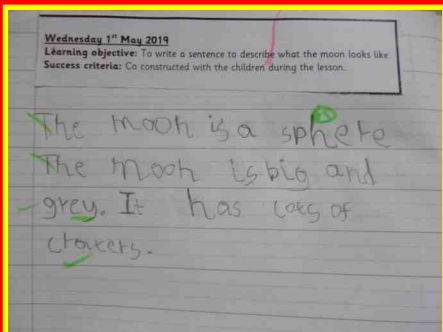 Wednesday 1st May 2019
Learning objective: To write a sentence to describe what the moon looks like.
Success criteria: Co constructed with the children during the lesson.
The moon is a sphere
The moon is big and
grey. It has lots of
craters.